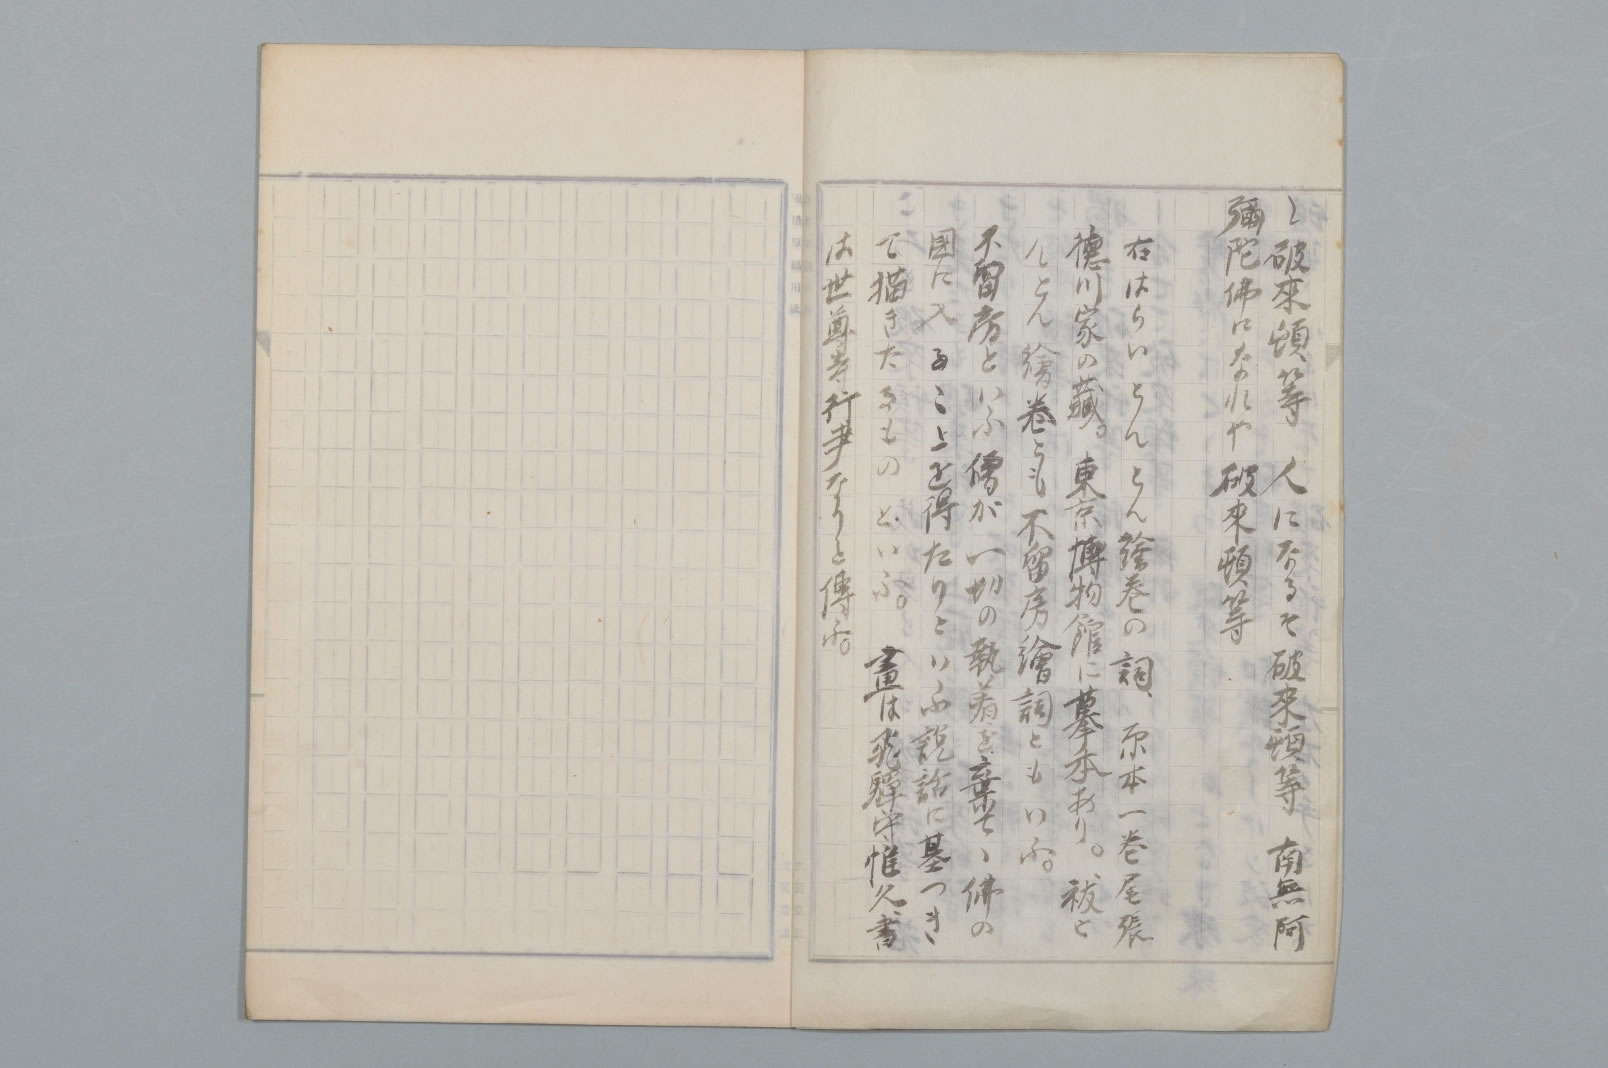 ゝ破來頓等　人になるそ破來頓等　南無阿
彌陀佛になれや破來頓等
右はらいとんとん繪卷の詞、原本一卷尾張
德川家の藏。東京博物館に摹本あり。祓と
んとん繪卷とも不留房繪詞ともいふ。
不留房といふ僧が一切の執着を棄てゝ佛の
國に入るこ上を得たりといふ說話に基つき
て描きたるものといふ。　畫は飛驒守惟久書
は世尊寺行尹なりと傳ふ。